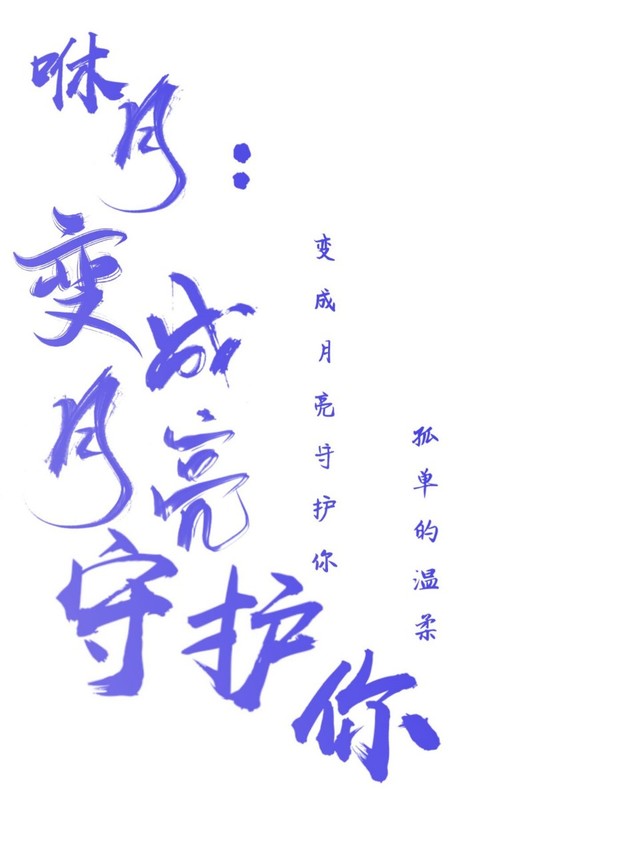 咻月：
变成月亮守护你
变成月亮守护你
孤单的温柔